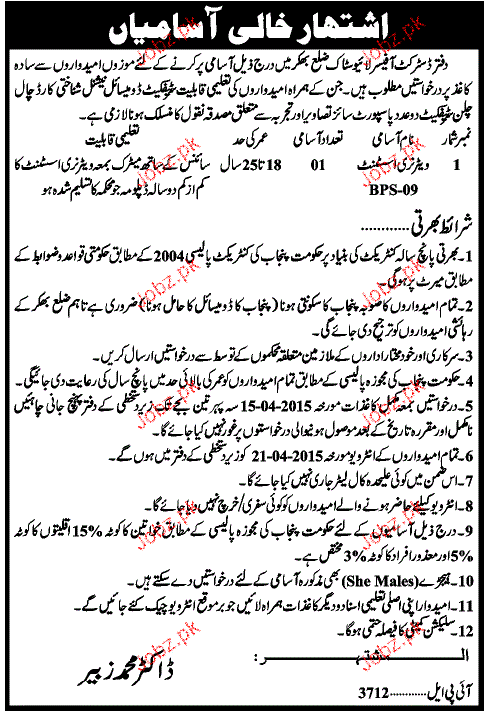 اشتہار خالی آسامیاں
دفتر ڈسٹرکٹ آفیسر لائیوسٹاک ضلع بھکر میں درج ذیل آسامی پر کرنے کے لئے موزوں امیدواروں سے سادہ
کاغذ پر درخواستیں مطلوب ہیں۔ جن کے ہمراہ امیدواروں کی تعلیمی قابلیت سرٹیفکیٹ ڈومیسائل نیشنل شناختی کارڈ چال
چلن سرٹیفکیٹ دو عدد پاسپورٹ سائز تصاویر اور تجربہ سے متعلق مصدقہ نقول کا منسلک ہونا لازمی ہے۔
نمبر شمار نام آسامی تعداد آسامی عمر کی حد تعلیمی قابلیت
1 ویٹرنری اسسٹنٹ 01 18 تا 25 سال سائنس کے ساتھ میٹرک بمعہ ویٹرنری اسسٹنٹ کا
BPS-09 کم از کم دو سالہ ڈپلومہ جو محکمہ کا تسلیم شدہ ہو
شرائط بھرتی............
1۔ بھرتی پانچ سالہ کنٹریکٹ کی بنیاد پر حکومت پنجاب کی کنٹریکٹ پالیسی 2004 کے مطابق حکومتی قواعد و ضوابط کے
مطابق میرٹ پر ہوگی۔
2۔ تمام امیدواروں کا صوبہ پنجاب کا سکونتی ہونا (پنجاب کا ڈومیسائل کا حامل ہونا) ضروری ہے تاہم ضلع بھکر کے
رہائشی امیدواروں کو ترجیح دی جائے گی۔
3۔ سرکاری اور خود مختار اداروں کے ملازمین متعلقہ محکموں کے توسط سے درخواستیں ارسال کریں۔
4۔ حکومت پنجاب کی مجوزہ پالیسی کے مطابق تمام امیدواروں کو عمر کی بالائی حد میں پانچ سال کی رعایت دی جائیگی۔
5۔ درخواستیں بمعہ مکمل کاغذات مورخہ 15-04-2015 سہ پہر تین بجے تک زیر دستخطی کے دفتر پہنچ جانی چاہئیں
نامکمل اور مقررہ تاریخ کے بعد موصول ہونیوالی درخواستوں پر غور نہیں کیا جائے گا۔
6۔ تمام امیدواروں کے انٹرویو مورخہ 21-04-2015 کو زیر دستخطی کے دفتر میں ہوں گے۔
7۔ اس ضمن میں کوئی علیحدہ کال لیٹر جاری نہیں کیا جائے گا۔
8۔ انٹرویو کیلئے حاضر ہونے والے امیدواروں کو کوئی سفری/خرچ نہیں دیا جائے گا۔
9۔ درج ذیل آسامیوں کے لئے حکومت پنجاب کی مجوزہ پالیسی کے مطابق خواتین کا کوٹہ %15 اقلیتوں کا کوٹہ
%5 اور معذور افراد کا کوٹہ %3 مختص ہے۔
10۔ ہیجڑے (She Males) بھی مذکورہ آسامی کے لئے درخواستیں دے سکتے ہیں۔
11۔ امیدوار اپنی اصلی تعلیمی اسناد و دیگر کاغذات ہمراہ لائیں جو بر موقع انٹرویو چیک کئے جائیں گے۔
12۔ سلیکشن کمیٹی کا فیصلہ حتمی ہوگا۔
المشتہر:
ڈاکٹر محمد زبیر
آئی پی ایل............3712